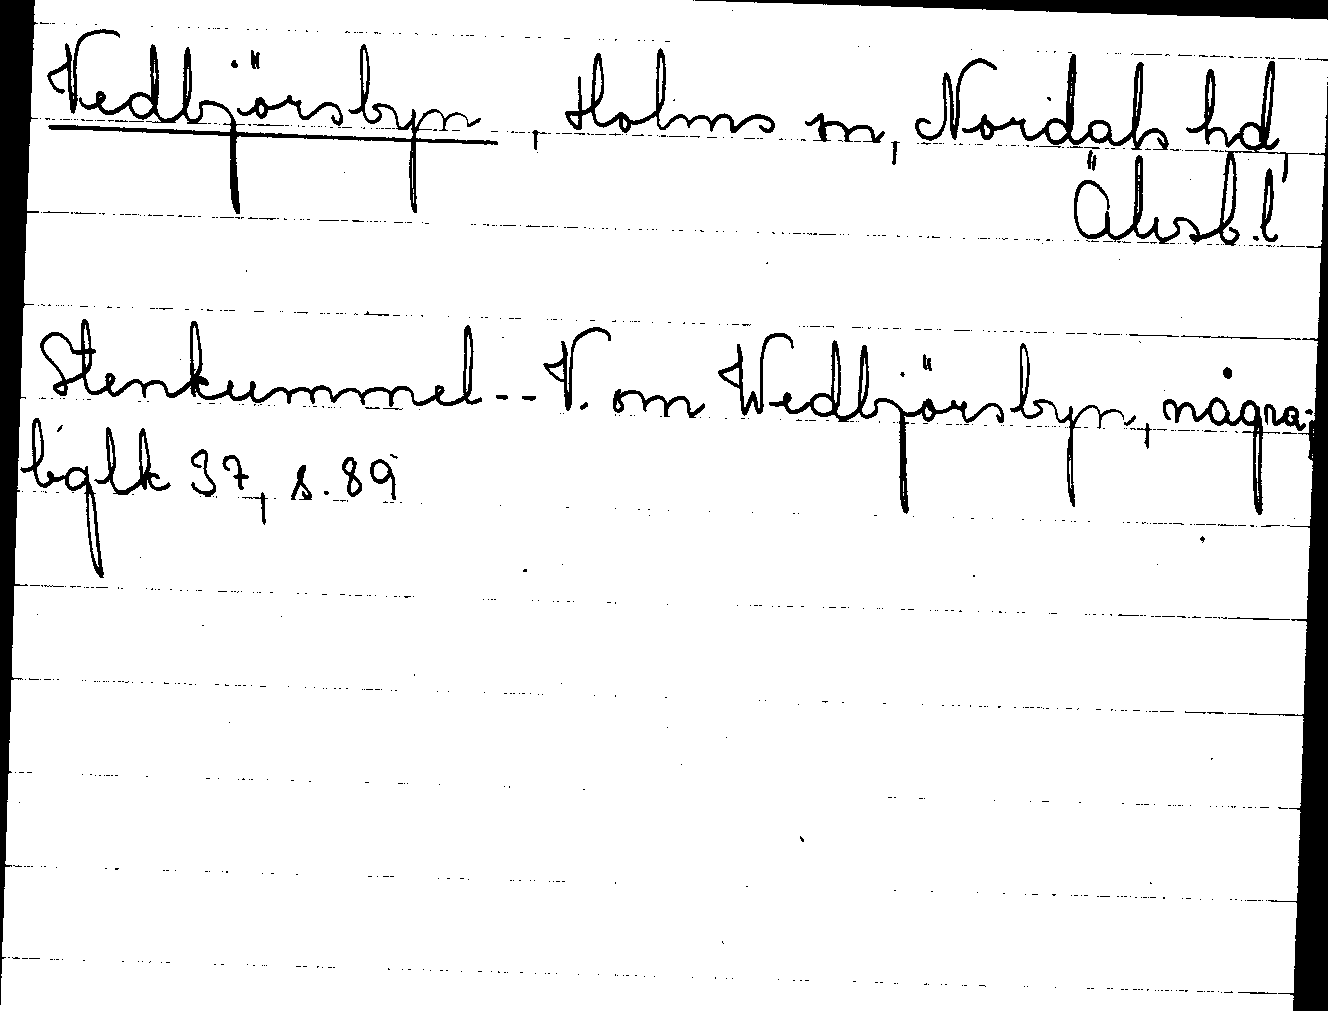 Vedbjörsbyn, Holms sn, Nordals hd,
Älvsb. l
Stenkummel -- V. om Wedbjörsbyn, några;
bglk 37, s. 89